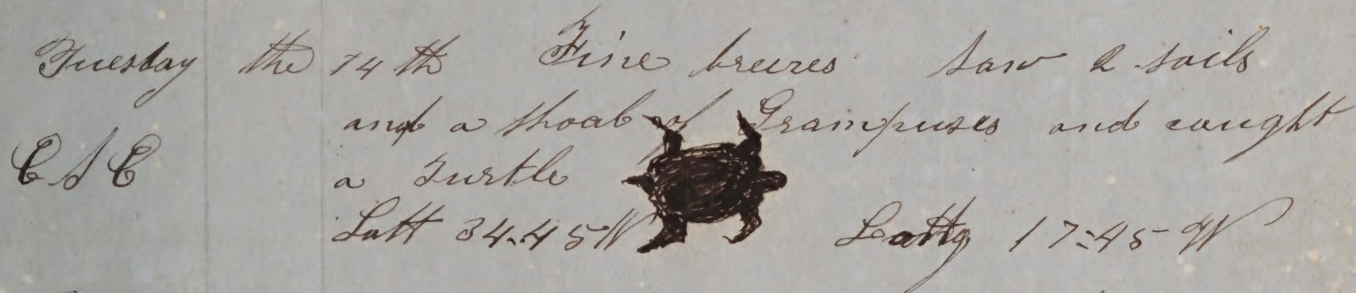 Tuesday the 14th Fine breezes Saw 2 sails
and a shoal of Grampuses and caught
ESE a Turtle
Latt 34-45 N Lattg 17-45 W